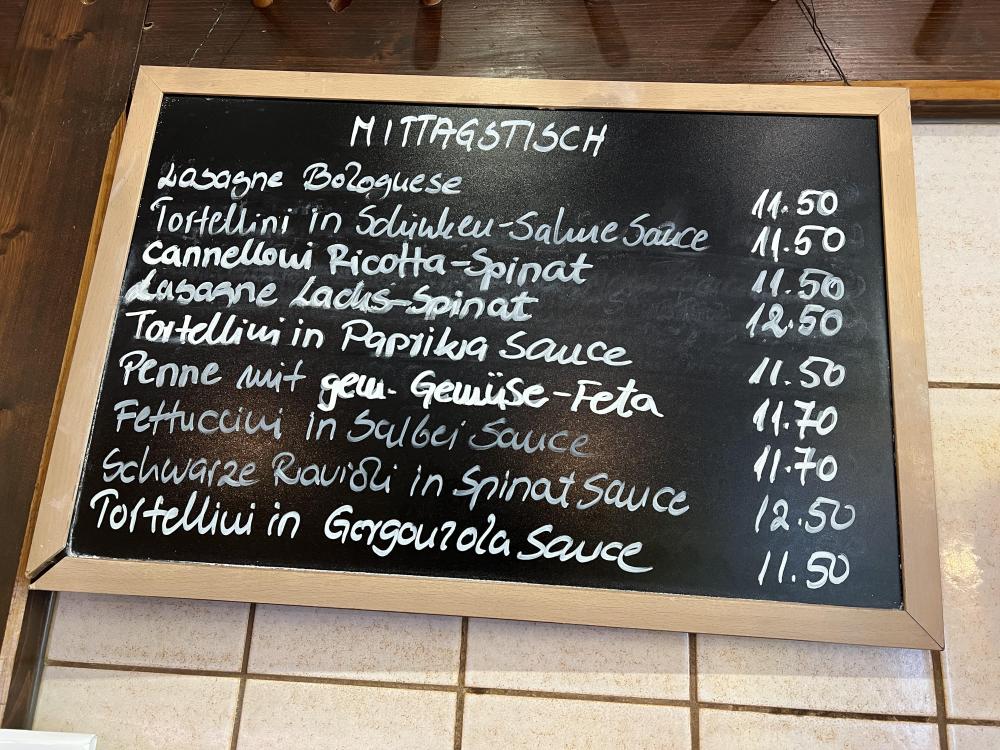 MITTAGSTISCH
Lasagne Bolognese 11.50
Tortellini in Schinken-Sahne Sauce 11.50
Cannelloni Ricotta-Spinat 11.50
Lasagne Lachs-Spinat 12.50
Tortellini in Paprika Sauce 11.50
Penne mit gem. Gemüse-Feta 11.70
Fettuccini in Salbei Sauce 11.70
Schwarze Ravioli in Spinat Sauce 12.50
Tortellini in Gorgonzola Sauce 11.50